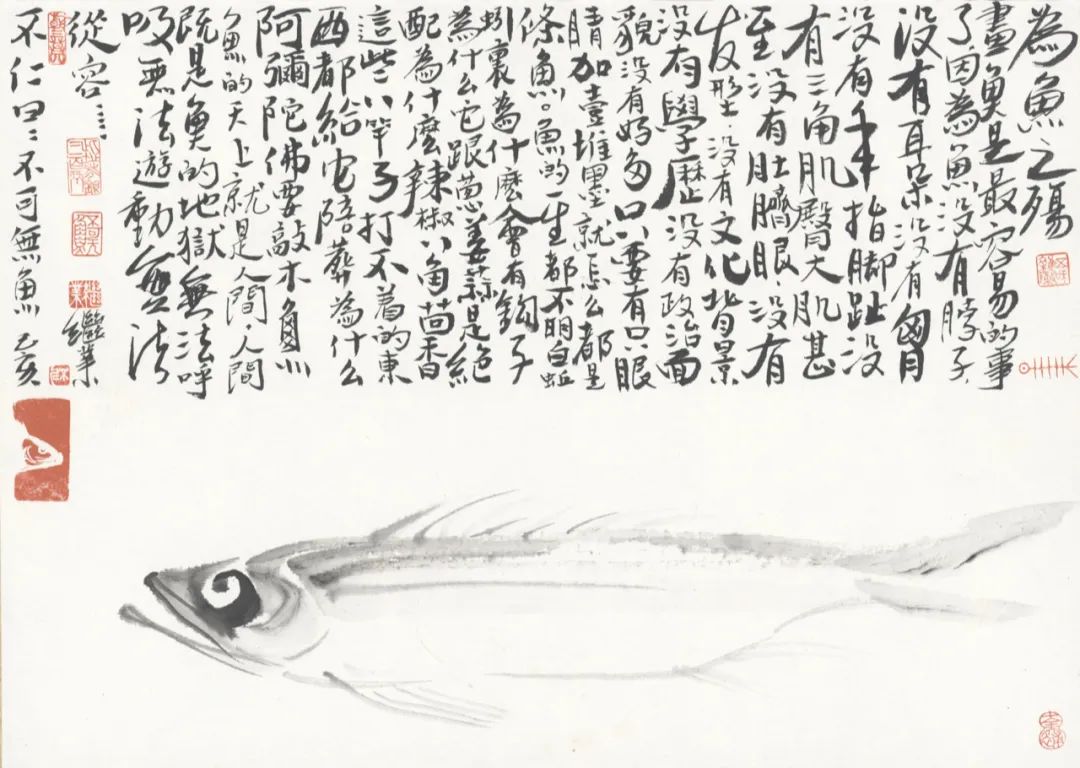 為魚之殤
畫魚是最容易的事
了因為魚没有脖子
没有耳朵没有胸
没有手指脚趾没
有三角肌臀大肌甚
至没有肚臍眼没有
友型没有文化背景
没有學歷没有政治面
貌没有好多只要有只眼
睛加壹堆墨就怎么都是
條魚。魚的一生都不明白蚯
蚓裏為什麽會有鈎子
為什么它跟葱姜蒜是絶
配為什麽辣椒八角茴香
這些八竿子打不着的東
西都給它陪葬為什么
阿彌陀佛要敲木魚
魚的天上就是人間人間
既是魚的地獄無法呼
吸無法遊動無法
從容……
不仁曰：不可無魚 己亥
繼業